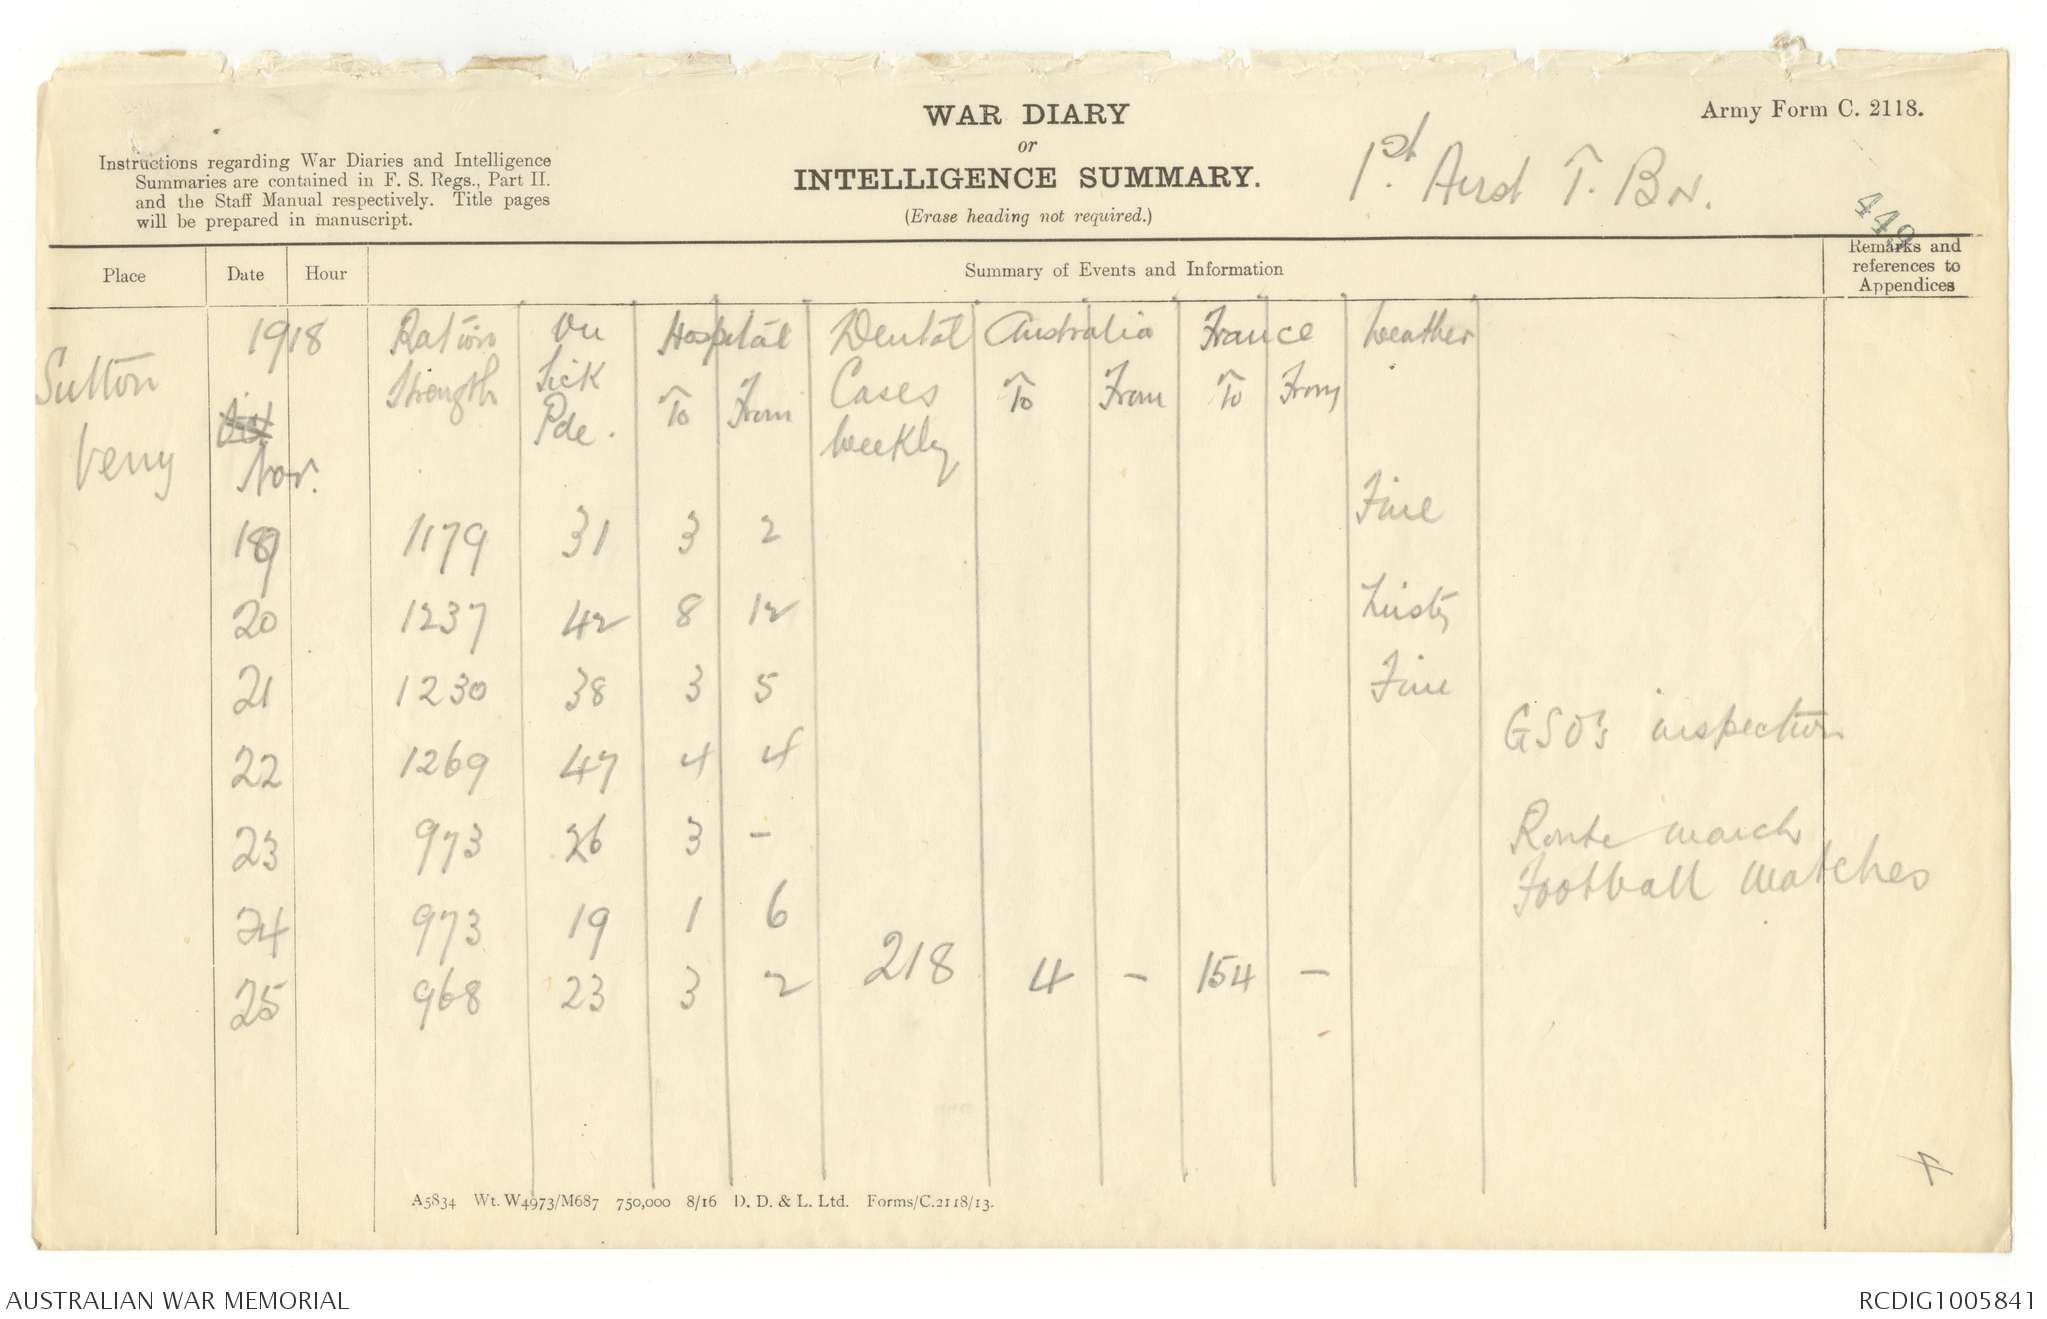 WAR DIARY
or
INTELLIGENCE SUMMARY.
(Erase heading not required.)
Army Form C. 2118.
Instructions regarding War Diaries and Intelligence
Summaries are contained in F. S. Regs., Part II.
and the Staff Manual respectively. Title pages
will be prepared in manuscript.
1st. Aust T. BN.
449
Place Date Hour Summary of Events and Information Remarks and references to Appendices
Sutton Veny
1918 Ration Strength On Sick Pde. Hospital To From Dental Cases Weekly Australia To From France To From Weather
Nov.
19 1179 31 3 2 Fine
20 1237 42 8 12 Misty
21 1230 38 3 5 Fine
22 1269 47 4 4 GSO's inspection
23 973 26 3 - Route march
Football matches
24 973 19 1 6
25 968 23 3 2 218 4 - 154 -
A5834 Wt. W4973/M687 750,000 8/16 D. D. & L. Ltd. Forms/C.2118/13.
AUSTRALIAN WAR MEMORIAL
RCDIG1005841